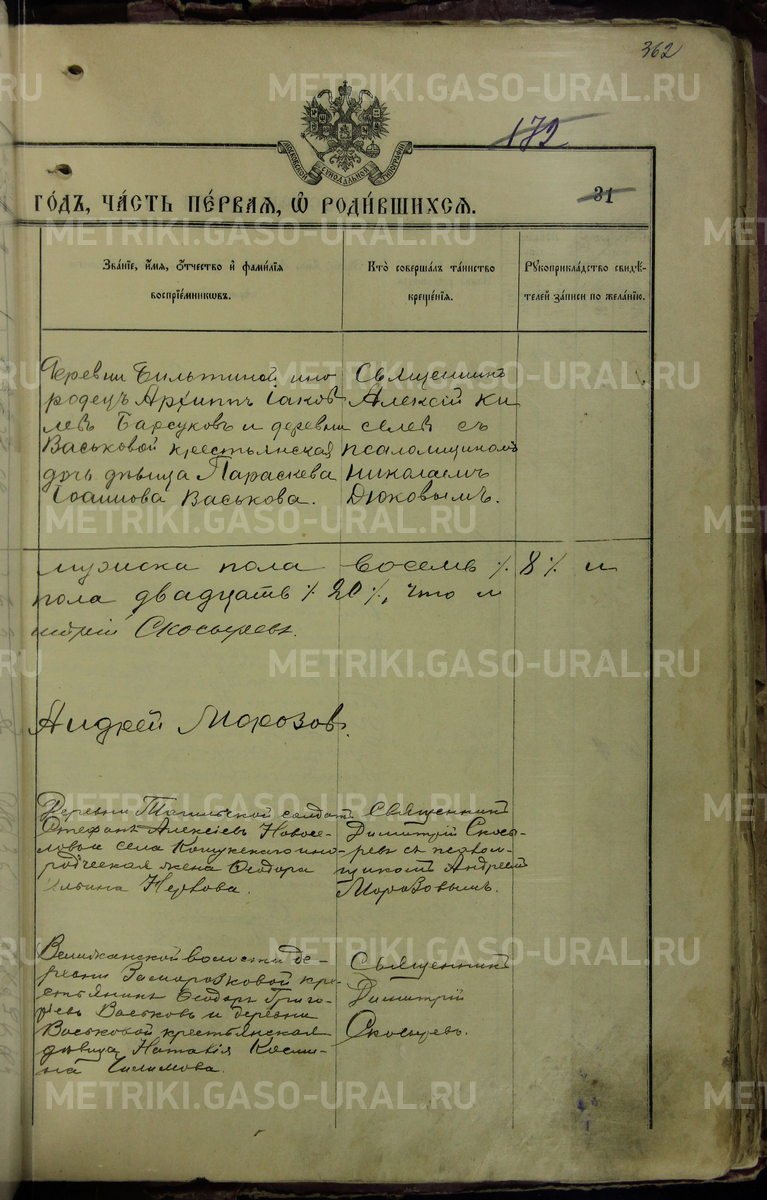 362
172
МОСКОВСКОЙ СѴНОДАЛЬНОЙ ТИПОГРАФІИ
ГО́ДЪ, ЧА́СТЬ ПЕ́РВАѦ, Ѡ҆ РОДИ́ВШИХСѦ.
31
Зва́нїе, и҆́мѧ, ѻ҆́тчество и҆ фами́лїѧ
воспрїе́мникѡвъ.
Кто̀ соверша́лъ та́инство
креще́нїѧ.
Рꙋкоприкла́дство свидѣ́-
телей за́писи по жела́нїю.
Деревни Бильтиной ино
родецъ Архиппъ Іаков
левъ Барсуковъ и деревни
Васьковой крестьянская
дочь дѣвица Параскева
Іоаннова Васькова.
Священникъ
Алексій Ки
селев съ
псаломщикомъ
Николаемъ
Дюковымъ.
мужска пола восемь ٪ 8 ٪ и
пола двадцать ٪ 20 ٪, что и
Скосыревъ.
Андрей Морозовъ.
Деревни солдат
Стефанъ Алексіевъ Новосе-
ловъ и села Кошукскаго ино-
родческая жена Ѳеодора
Ильина Нервова.
Священникъ
Димитрій Скосы-
ревъ съ псалом-
щикомъ Андреемъ
Морозовымъ.
волости де-
ревни Заморозковой кре-
стьянинъ Ѳеодоръ Григо-
рьевъ Васьковъ и деревни
Васьковой крестьянская
дѣвица Наталія Косми-
на Чилимова.
Священникъ
Димитрій
Скосыревъ.
METRIKI.GASO-URAL.RU